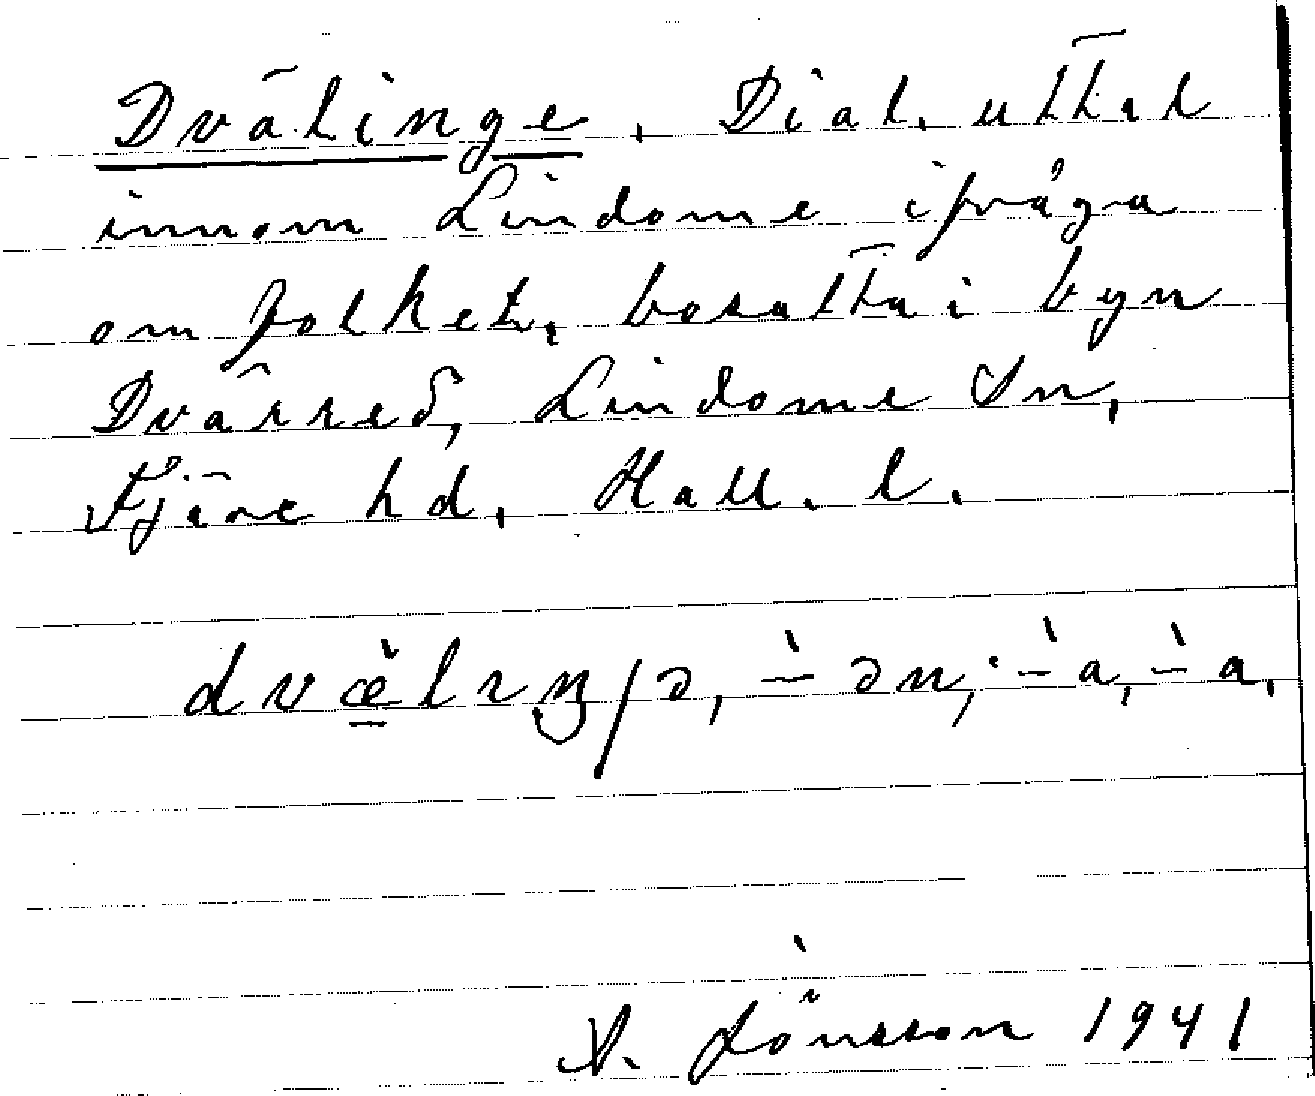 Dvälinge. Dial. uttal
innom Lindome ifråga
om folket, bosatta i byn
Dvärred, Lindome Sn,
Fjäre hd. Hall. l.
dvæ̀lıŋ/ə, -̀ ən, -̀ a, -̀ a.
A. Jönsson 1941